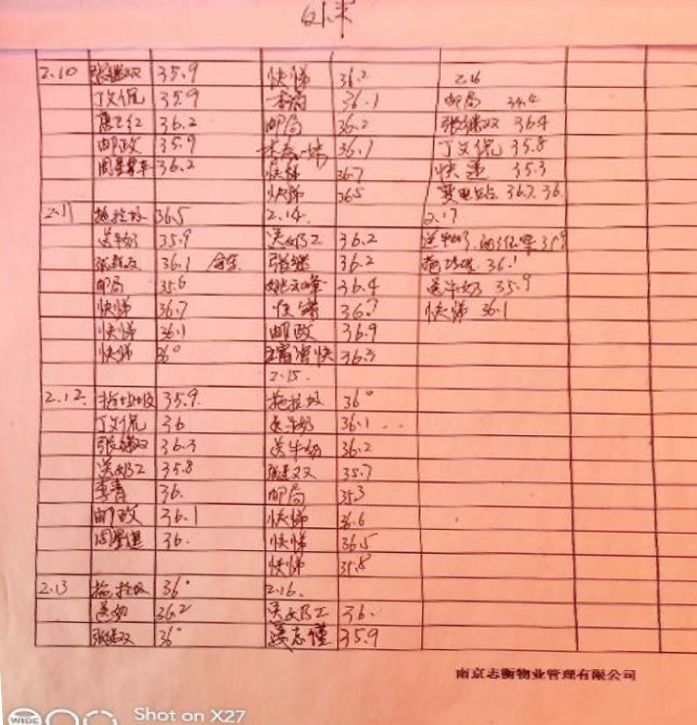 外来
2.10 张继双 35.9 快递 36.2 2.16
丁文侃 35.9 36.1 邮局 34.4
36.2 邮局 36.2 张继双 36.4
邮政 35.9 36.1 丁文侃 35.8
36.2 快递 36.7 快递 35.3
快递 365 变电站 36.7. 36.
2.11 拖垃圾 36.5 2.14. 2.17
送牛奶 35.9 送奶工 36.2 送牛奶
张继双 36.1 张继 36.2 拖垃圾 36.1
邮局 35.6 36.4 送牛奶 35.9
快递 36.7 36.7 快递 36.1
快递 36.1 邮政 36.9
快递 36° 36.3
2.15.
2.12. 拖垃圾 35.9. 拖垃圾 36°
丁文侃 36 送牛奶 36.1
张继双 36.3 送牛奶 36.2
送奶工 35.8 张继双 35.7
李青 36. 邮局 35.3
邮政 36.1 快递 36.6
36. 快递 36.5
快递 35.8
2.13 拖垃圾 36° 2.16.
送奶 36.2 送奶工 36.
张继双 36° 35.9
南京志衡物业管理有限公司
WIDE
Shot on X27